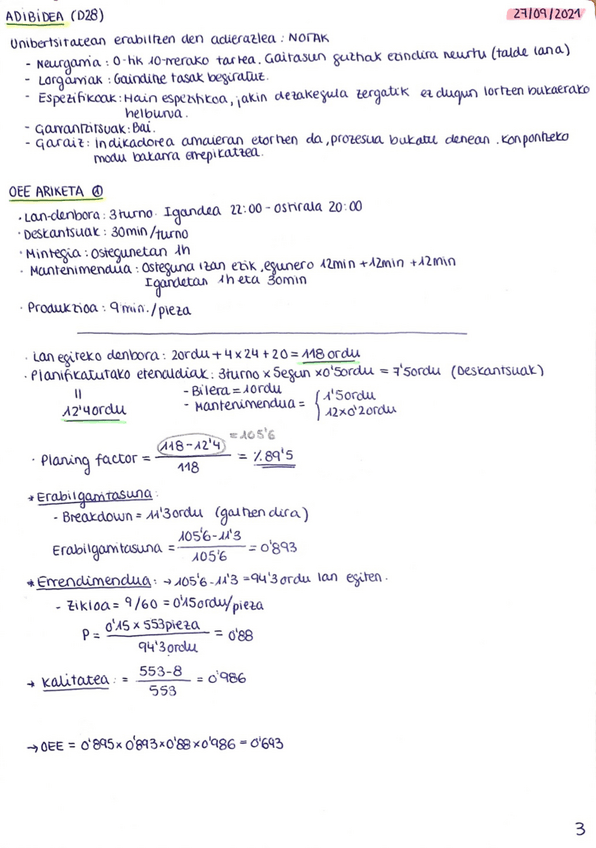 ADIBIDEA (D28)
27/09/2021
Unibertsitatean erabiltzen den adierazlea : NOTAK
- Neurgarria : 0-tik 10-merako tartea. Gaitasun guztiak ezindira neurtu (talde lana)
- Lorgarriak : Gainditze tasak begiratuz.
- Espezifikoak : Hain espezifikoa, jakin dezakegula zergatik ez dugun lortzen bukaerako
helburua.
- Garrantzitsuak: Bai.
- Garaiz: indikadorea amaieran etortzen da, prozesua bukatu denean. Konpontzeko
modu bakarra errepikatzea.
OEE ARIKETA ①
· Lan-denbora : 3 turno. Igandea 22:00 - Ostirala 20:00
· Deskantsuak : 30min/turno
· Mintegia : Ostegunetan 1h
· Mantenimendua : Osteguna izan ezik, egunero 12min +12min +12min
Igandetan 1h eta 30min
· Produkzioa : 9 min./pieza
· Lan egiteko denbora : 2ordu + 4 x 24 + 20 = 118 ordu
· Planifikatutako etenaldiak : 3turno x 5egun x 0'5ordu = 7'5ordu (Deskantsuak)
- Bilera = 1ordu
- Mantenimendua = { 1'5ordu
12x0'2ordu
=
12'4ordu
· Planing factor = (118-12'4) / 118 = %89'5
= 105'6
* Erabilgarritasuna :
- Breakdown = 11'3ordu (galtzen dira)
Erabilgarritasuna = 105'6-11'3 / 105'6 = 0'893
* Errendimendua : → 105'6 - 11'3 = 94'3 ordu lan egiten.
- Zikloa = 9/60 = 0'15ordu/pieza
P = 0'15 x 553pieza / 94'3ordu = 0'88
→ Kalitatea : = 553-8 / 553 = 0'986
→ OEE = 0'895x0'893x0'88x0'986 = 0'693
3